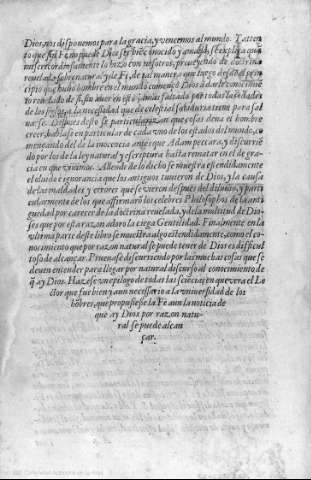 Dios nos disponemos para la gracia, y vencemos al mundo. Y atten
to que sin Fè no puede Dios ser bien conocido y amado, se explica quan
misericordiosamente lo hizo con nosotros, proueyendo de doctrina
reuelada sobrenatural y de Fè, de tal manera que luego desde el prin
cipio que huuo hombre en el mundo comencò Dios à darle conocimiẽ
to reuelado de si, sin auer en esto jamas faltado por todas las edades
de los siglos, y la necessidad que de celestial sabiduria tiene para sal
uarse. Despues desto se particularizan que cosas deua el hombre
creer, hablase en particular de cada vno de los estados del mundo, co
mençando del de la inocencia antes que Adam peccara, y discurriẽ
do por los de la ley natural y escriptura hasta rematar en el de gra
cia en que viuimos. Allende de lo dicho se muestra estendidamente
el oluido e ignorancia que los antiguos tuuieron de Dios, y la causa
de las maldades y errores que se vieron despues del diluuio, y parti
cularmente de los que affirmarõ los celebres Philosophos de la anti
guedad por carecer de la doctrina reuelada, y de la multitud de Dio
ses que por essa razon adoro la ciega Gentilidad. Finalmente en la
vltima parte deste libro se muestra algo estendidamente, como el co
nocimiento que por razon natural se puede tener de Dios es difficul
toso de alcançar. Prueuase discurriendo por las muchas cosas que se
deuen entender para llegar por natural discurso al conocimiento de
q̃ ay Dios. Hazese vn epilogo de todas las sciẽcias, en que vera el Le
ctor que fue bien y aun necessario a la vniuersidad de los
hõbres, que propusiesse la Fè aun la noticia de
que ay Dios por razon natu-
ral se puede alcan
çar.